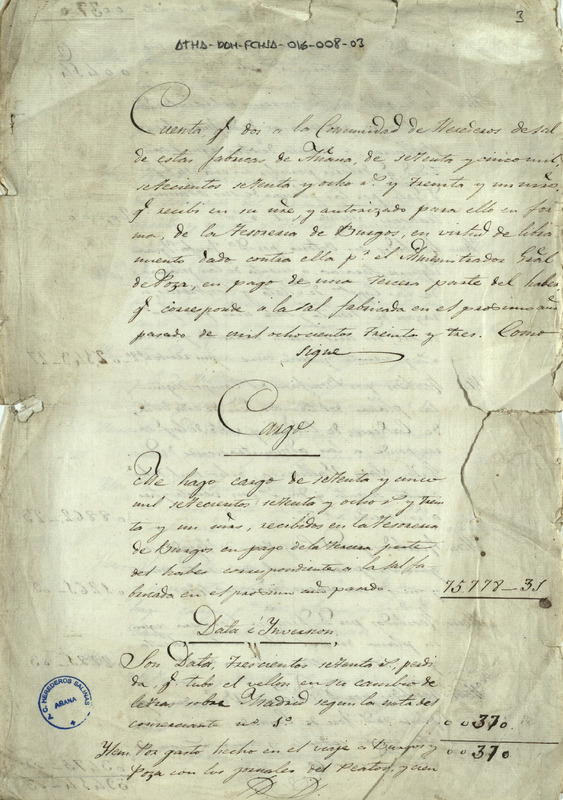 3
ATHA-DAH-FCHSA-016-008-03
Cuenta q.e dos a la Comunidad de Herederos de sal
de estas fabricas de Añana, de setenta y cinco mil
setecientos setenta y ocho r.s y treinta y un mrs,
q.e recibi en su nre, y autorizado para ello en for
ma, de la Tesoreria de Burgos, en virtud de libra
miento dado contra ella p.r el Administrador Gral
de Poza, en pago de una tercera parte del haber
q.e corresponde a la sal fabricada en el proximo año
pasado de mil ochocientos treinta y tres. Como
sigue
Cargo
Me hago cargo de setenta y cinco
mil setecientos setenta y ocho r.s y trein
ta y un mrs, recibidos en la Tesoreria
de Burgos en pago de la tercera parte
del haber correspondiente a la sal fa
bricada en el proximo año pasado. 75778-31
Data é Inversion
Son Data, trescientos setenta r.s, perdi
da, q.e tubo el vellon en su cambio de
letras sobre Madrid segun la nota del
comerciante n.o 1.o 00370.
00370
Ytem Por gasto hecho en el viaje a Burgos y
Poza con los jornales del Peaton, y cien
C. HEREDEROS SALINAS
AÑANA